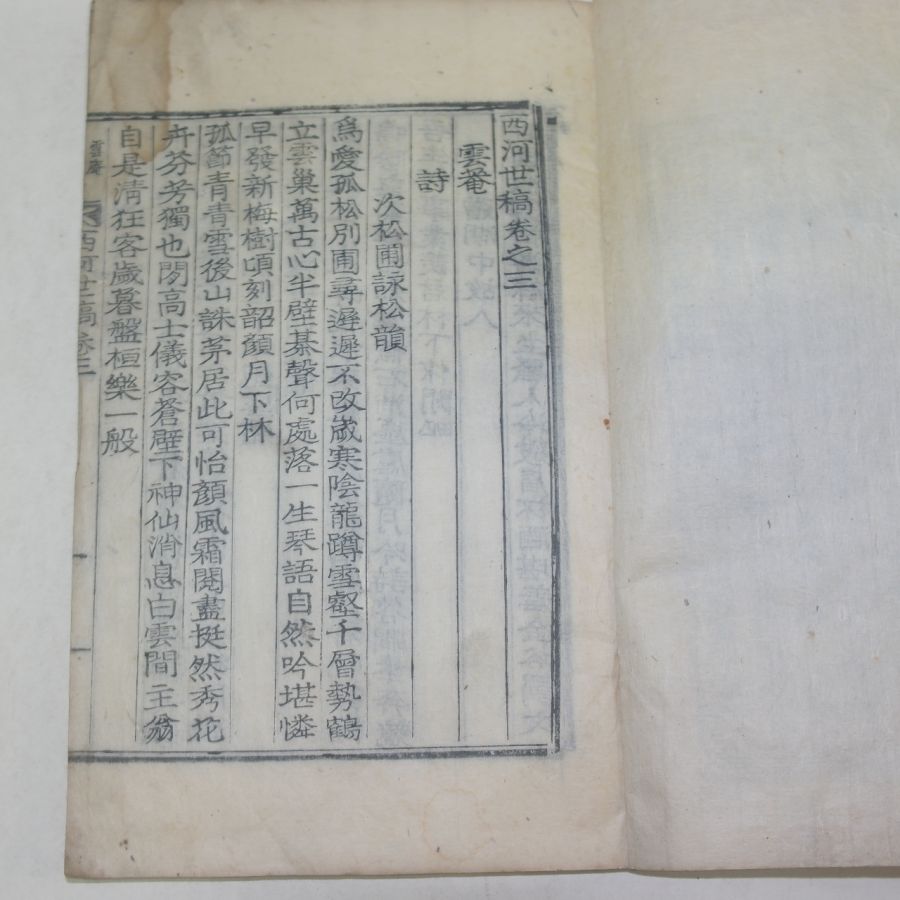 西河世稿卷之三
雲菴
詩
次松圃詠松韻
爲愛孤松別圃尋遲遲不改歲寒陰龍蹲雪壑千層勢鶴
立雲巢萬古心半壁碁聲何處落一生琴語自然吟堪憐
早發新梅樹頃刻韶顏月下林
孤節青青雪後山誅茅居此可怡顏風霜閱盡挺然秀花
卉芬芳獨也閒高士儀容蒼壁下神仙消息白雲間主翁
自是淸狂客歲暮盤桓樂一般
雲菴
西河世稿卷三